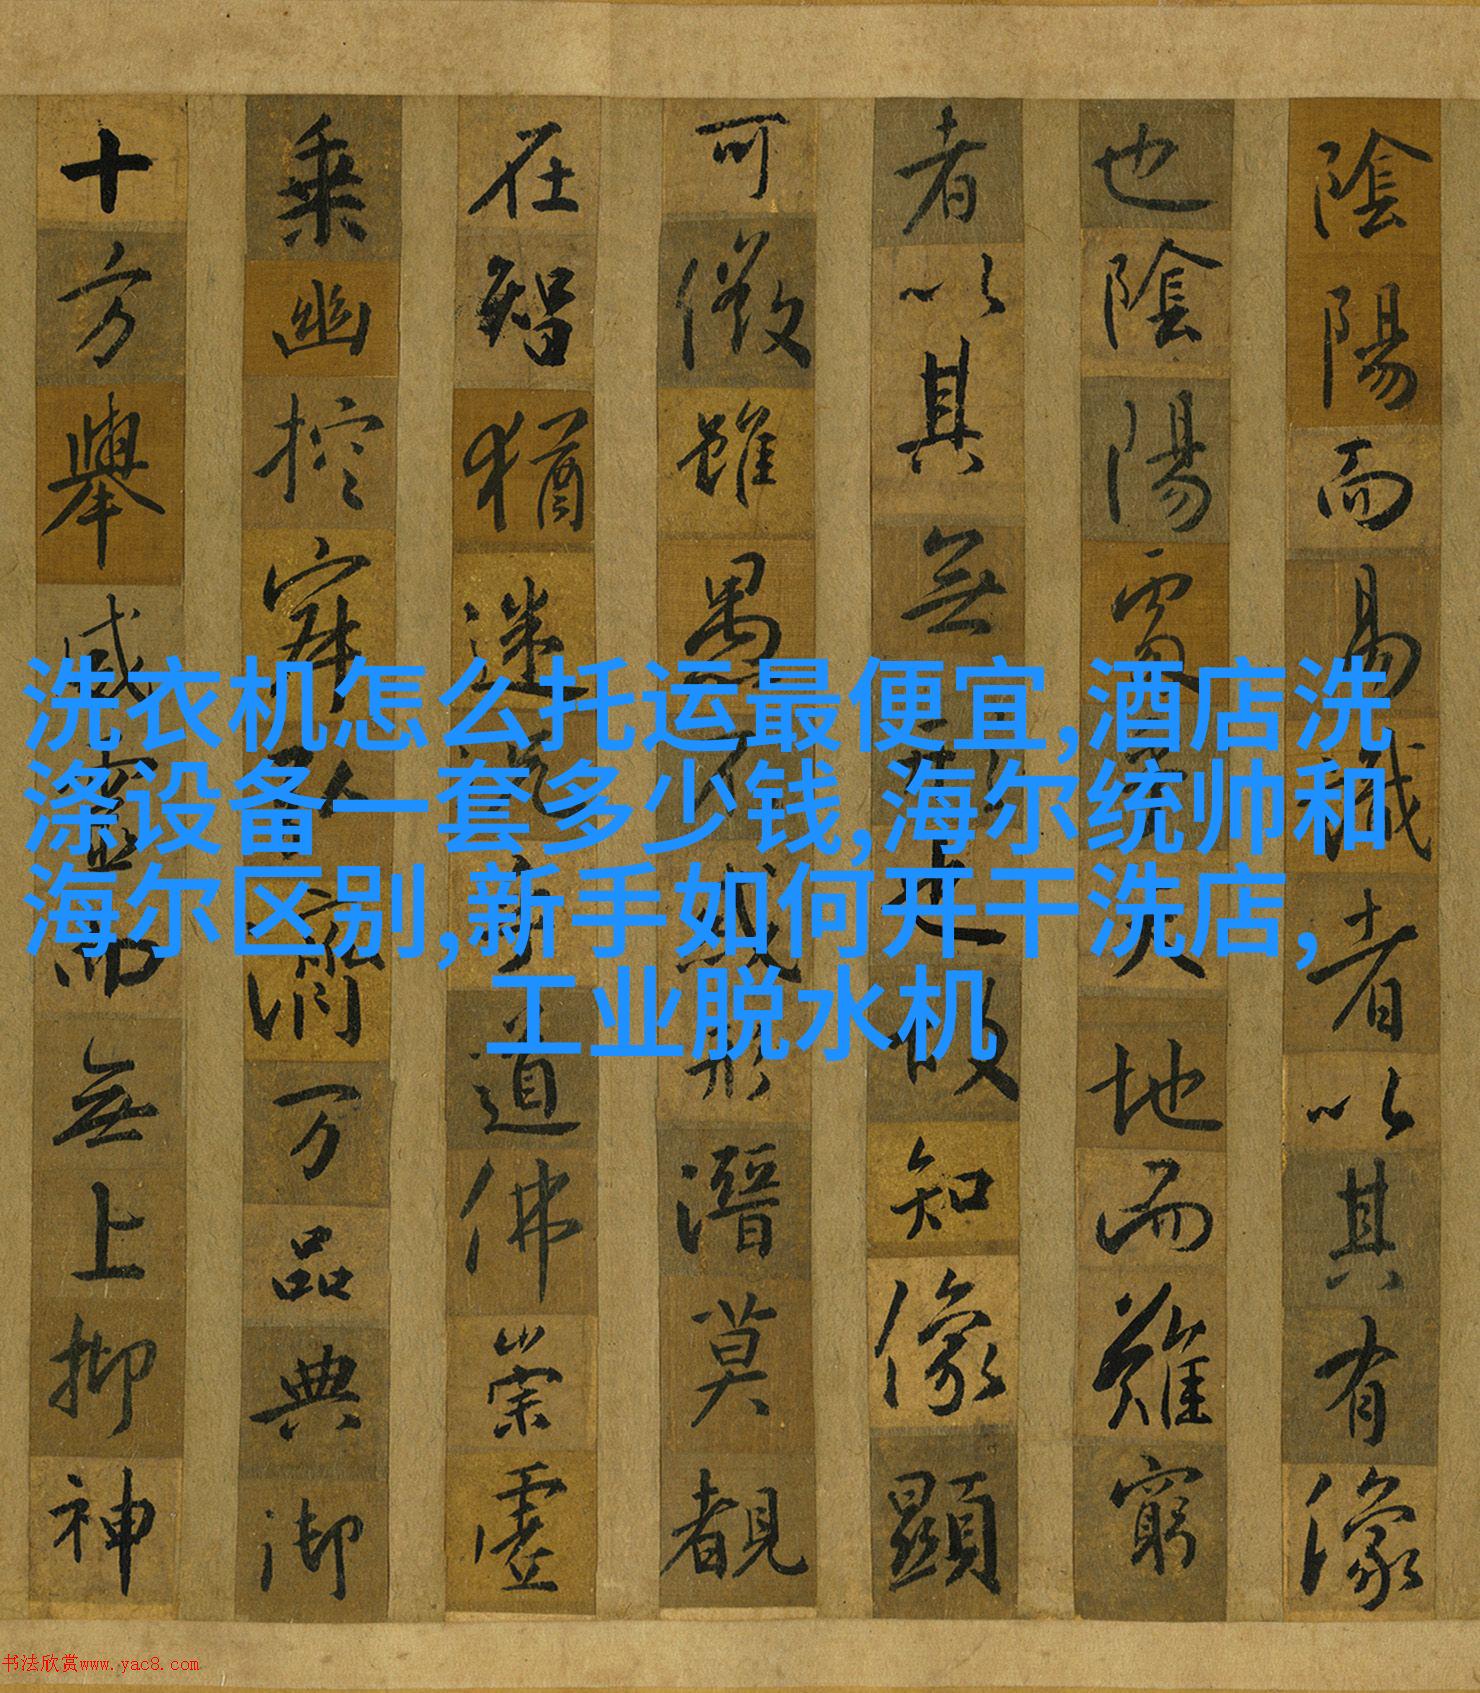 陰陽而易識者以其有像
也陰陽處乎天地而難窮
者以其無形故知像顯
可徵雖愚不惑形潛莫覩
在智猶迷況乎道佛崇虛
乘幽控寂弘濟万品典御
十方舉威靈而無上抑神
洗衣机怎么托运最便宜,酒店洗
涤设备一套多少钱,海尔统帅和
海尔区别,新手如何开干洗店,
工业脱水机
书法欣赏www.yac8.com